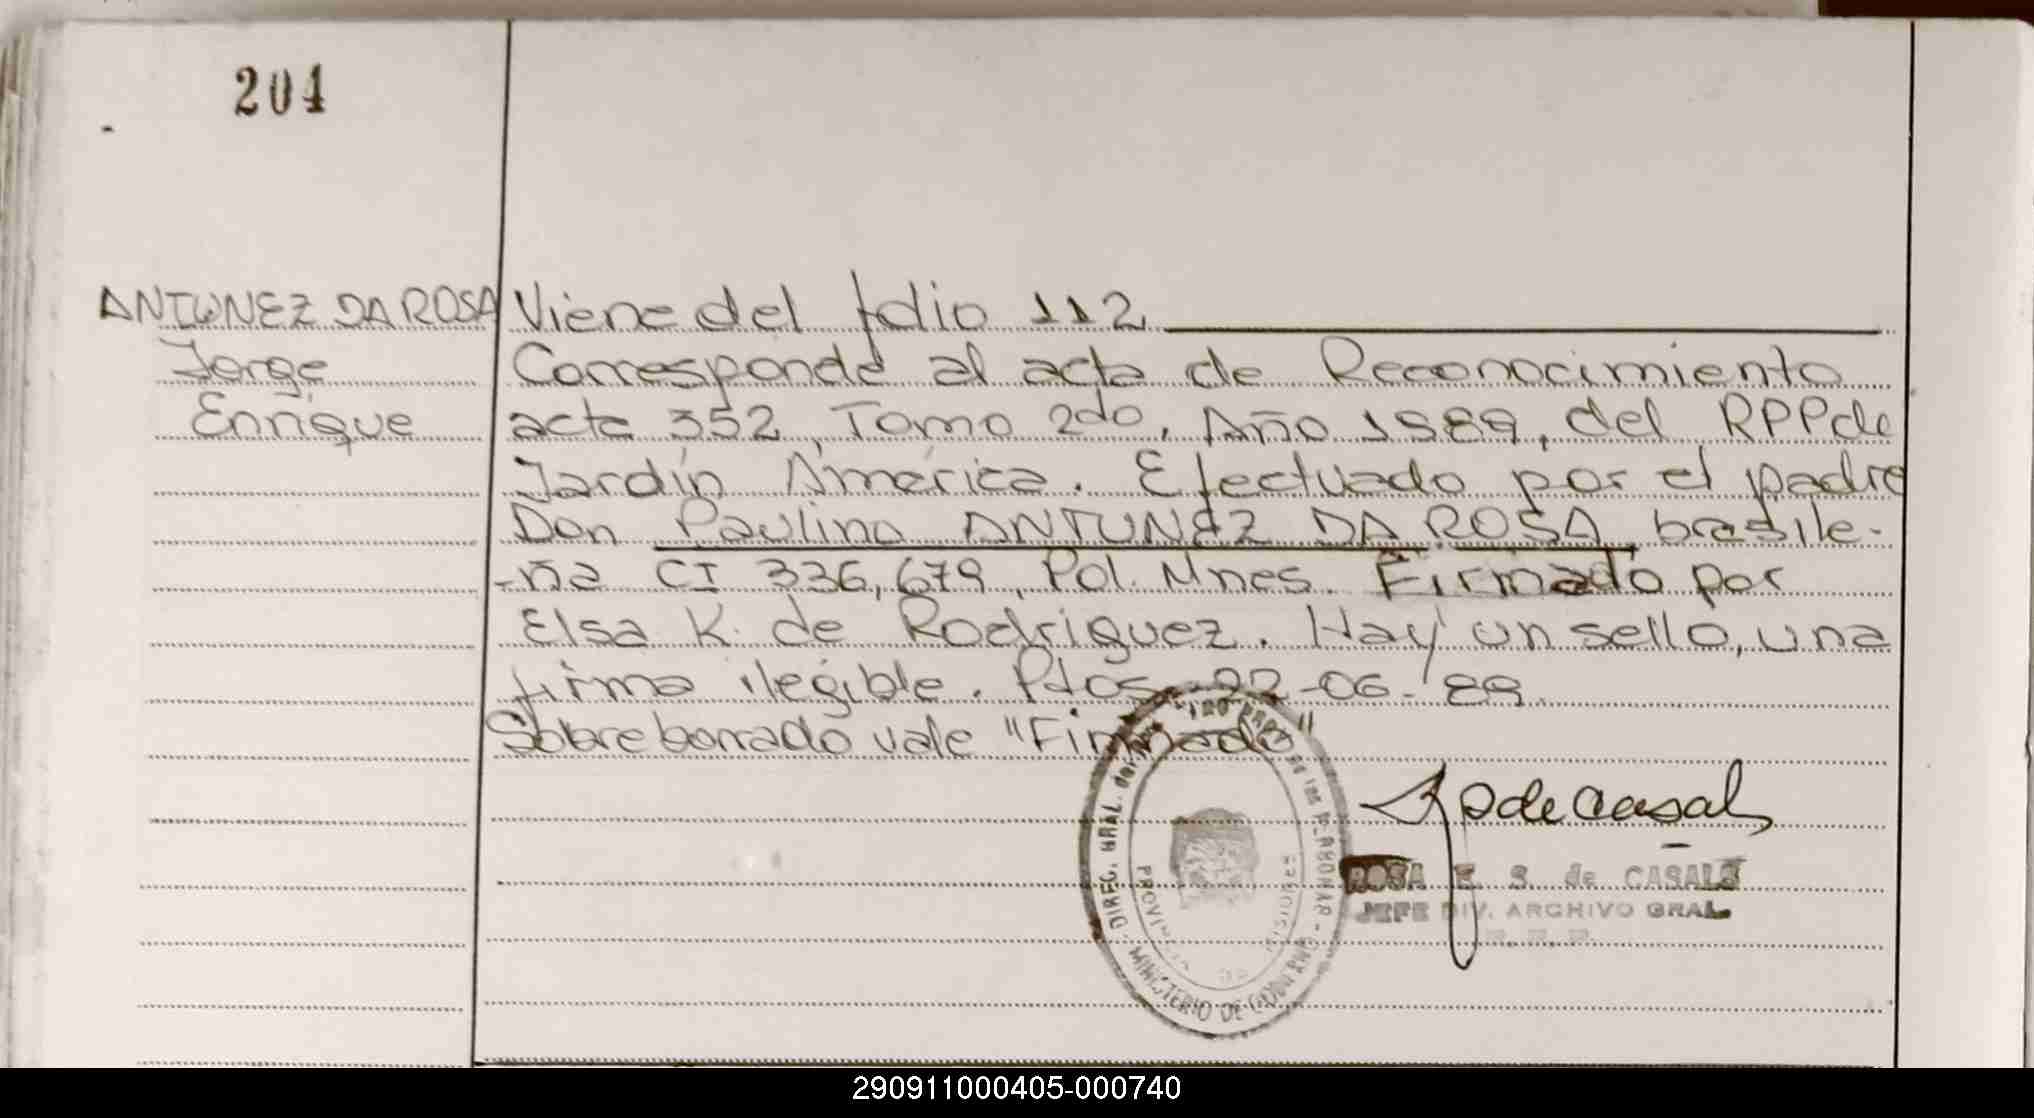 204
ANTUNEZ DA ROSA
Jorge
Enrique
Viene del folio 112
Corresponde al acta de Reconocimiento
acta 352, Tomo 2do, Año 1989, del RPPde
Jardín América. Efectuado por el padre
Don Paulino ANTUNEZ DA ROSA brasile-
-ña CI 336,679, Pol. Mnes. Firmado por
Elsa K. de Rodriguez. Hay un sello, una
firma ilegible. Pdos 22-06-89.
Sobre borrado vale "Firmado"
DIREC. GRAL. del de las PERSONAS
MINISTERIO DE GOBIERNO
PROVINCIA DE MISIONES
de Casals
ROSA E. S. de CASALS
JEFE DIV. ARCHIVO GRAL.
290911000405-000740